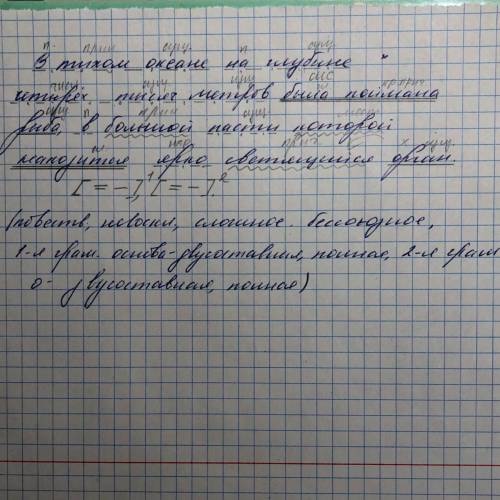 п. прил сущ. п сущ.
В тихом океане на глубине
числ сущ сущ
четырёх тысяч метров была поймана
сущ п прил сущ. мест
рыба, в большой пасти которой
сущ.
находится ярко светящийся орган.
[= –],¹ [= –].²
(повеств, невоскл, сложное. бессоюзное,
1-я грам. основа-двусоставная, полная, 2-я грам
о- двусоставная, полная)